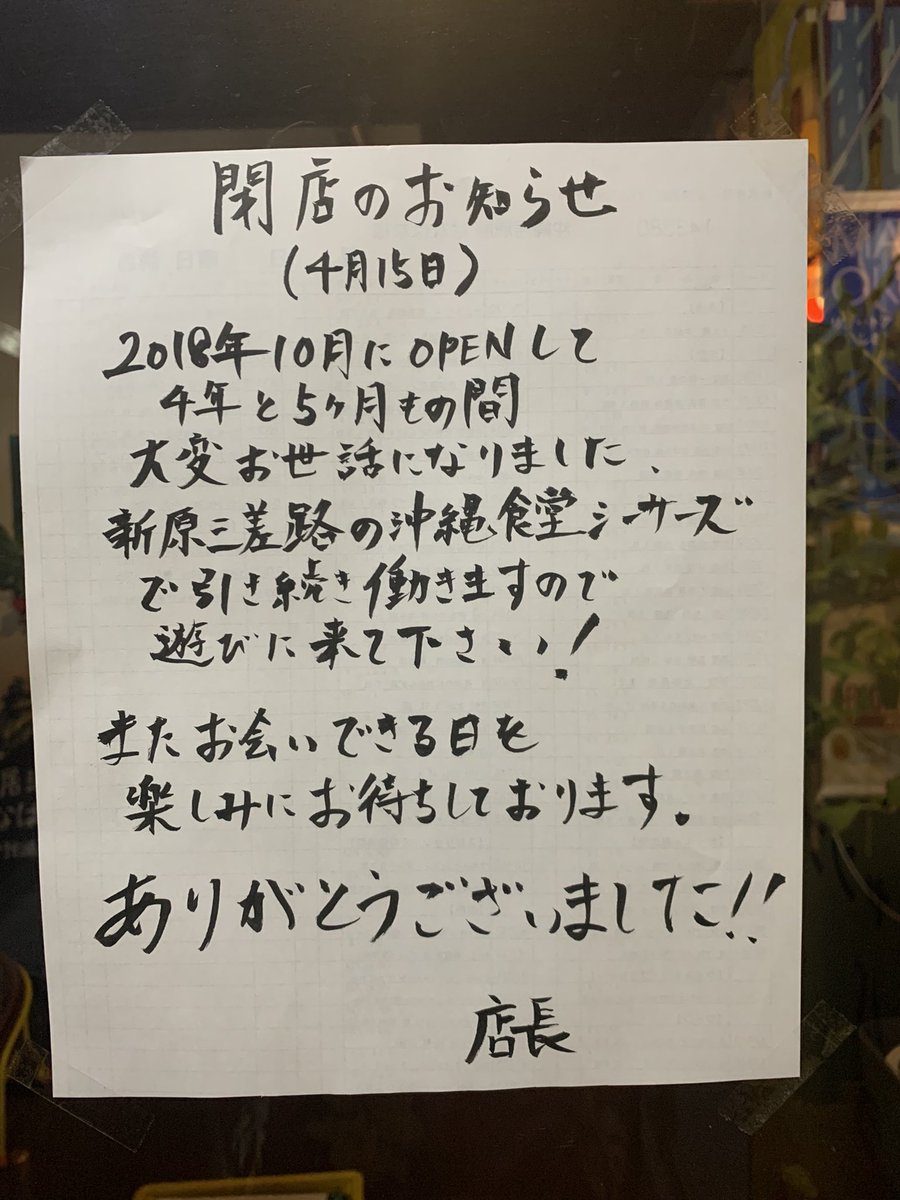 閉店のお知らせ
(4月15日)
2018年10月にOPENして
4年と5ヶ月もの間
大変お世話になりました、
新原三差路の沖縄食堂シーサーズ
で引き続き働きますので
遊びに来て下さい!
またお会いできる日を
楽しみにお待ちしております。
ありがとうございました!!
店長